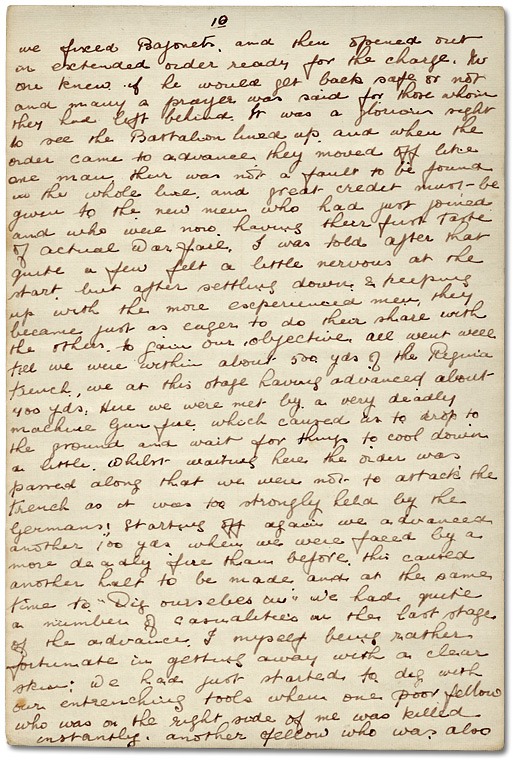 10
we fixed Bayonets, and then opened out
in extended order ready for the charge. No
one knew if he would get back safe or not
and many a prayer was said for those whom
they had left behind. It was a glorious sight
to see the Battalion lined up and when the
order came to advance they moved off like
one man, their was not a fault to be found
in the whole line, and great credit must be
given to the new men who had just joined
and who were now having their first taste
of actual Warfare. I was told after that
quite a few felt a little nervous at the
start but after settling down & keeping
up with the more experienced men, they
became just as eager to do their share with
the others to gain our objective. all went well
till we were within about 500 yds of the Regina
trench, we at this stage having advanced about
400 yds. Here we were met by a very deadly
machine Gun fire which caused us to drop to
the ground and wait for things to cool down
a little. Whilst waiting here the order was
passed along that we were not to attack the
trench as it was too strongly held by the
Germans! Starting off again we advanced
another 100 yds when we were faced by a
more deadly fire than before. this caused
another halt to be made and at the same
time to "Dig ourselves in" we had quite
a number of casualities in the last stage
of the advance, I myself being rather
fortunate in getting away with a clear
skin: We had just started to dig with
our entrenching tools when one poor fellow
who was on the right side of me was killed
instantly. another fellow who was also